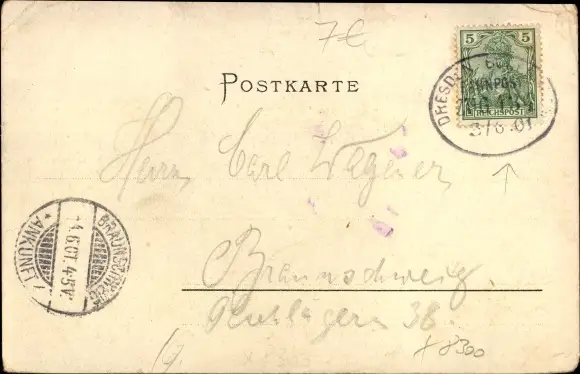 7€
5
REICHSPOST
DRESDEN
BAHNPOST
3/6.01
POSTKARTE
Herrn Carl Wagener
BRAUNSCHWEIG
4.6.01.4-5V.
* ANKUNFT
Braunschweig.
38.
x 8300